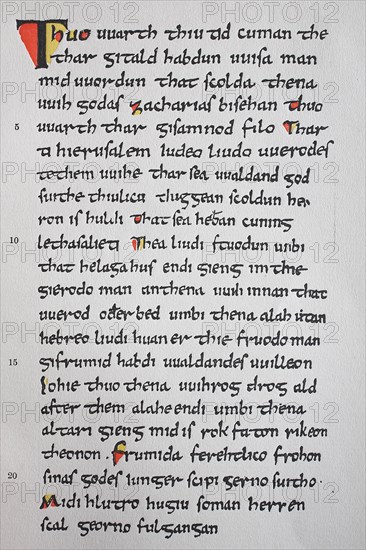 Thuo uuarth thiu tid cuman the
thar gitald habdun uuisa man
mid uuordun that scolda thena
uuih godas Zacharias bisehan Thuo
5 uuarth thar gisamnod filo Thar
ti hierusalem Iudeo liudo uuerodes
te them uuihe thar sea uualdand god
suithe thiulicu thiggean scoldun her
ron is huldi That sea heban cuning
10 lethas alieti Thea liudi stuodun umbi
that helaga hus endi gieng im the
gierodo man an thena uuih innan that
uuerod oder bed umbi thena alah utan
hebreo liudi huan er thie fruodo man
15 gifrumid habdi uualdandes uuilleon
So hie thuo thena uuihrog drog ald
after them alahe endi umbi thena
altari gieng mid is rok faton rikeon
theonon. Frumida ferehtlico frohon
20 sinas godes iunger scipi gerno suitho.
Midi hlutro hugiu so man herren
scal georno fulgangan
PHOTO 12